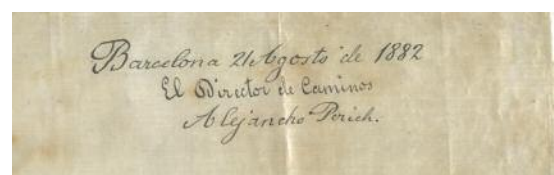 Barcelona 21 Agosto de 1882
El Director de Caminos
Alejandro Perich.